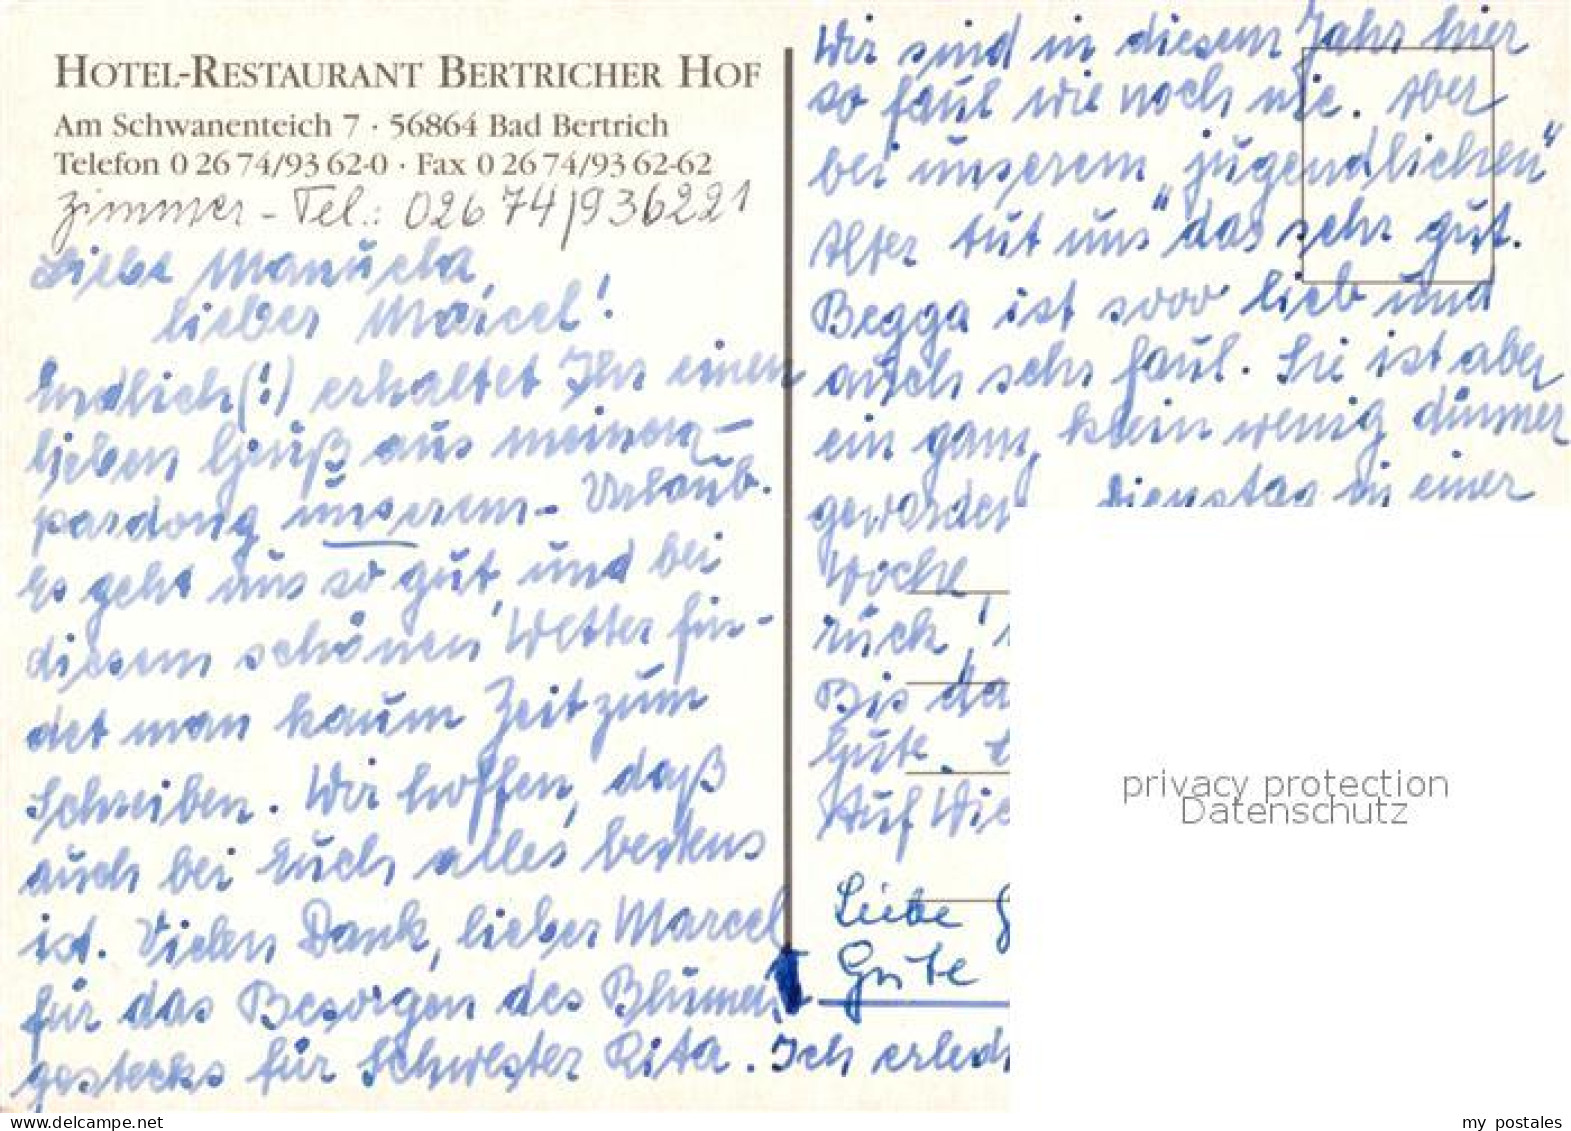 HOTEL-RESTAURANT BERTRICHER HOF
Am Schwanenteich 7 · 56864 Bad Bertrich
Telefon 0 26 74/93 62-0 · Fax 0 26 74/93 62-62
Zimmer - Tel.: 026 74/936221
Liebe Manuela,
lieber Marcel!
Endlich (!) erhaltet Ihr einen
lieben Gruß aus meinem -
pardong unserem - Urlaub.
Es geht uns so gut, und bei
diesem schönen Wetter fin-
det man kaum Zeit zum
Schreiben. Wir hoffen, daß
auch bei Euch alles bestens
ist. Vielen Dank, lieber Marcel
für das Besorgen des Blumen-
gestecks für Schwester Rita. Ich erledi
Wir sind in diesem Jahr hier
so faul wie noch nie. Aber
bei unserem „jugendlichen"
Alter tut uns das sehr gut.
Begga ist sooo lieb und
auch sehr faul. Sie ist aber
ein ganz klein wenig dünner
geworden. Dienstag in einer
Woche,
rück,
Bis da
Gute.
Auf Wie
Liebe G
Gute
privacy protection
Datenschutz
www.delcampe.net
my_postales